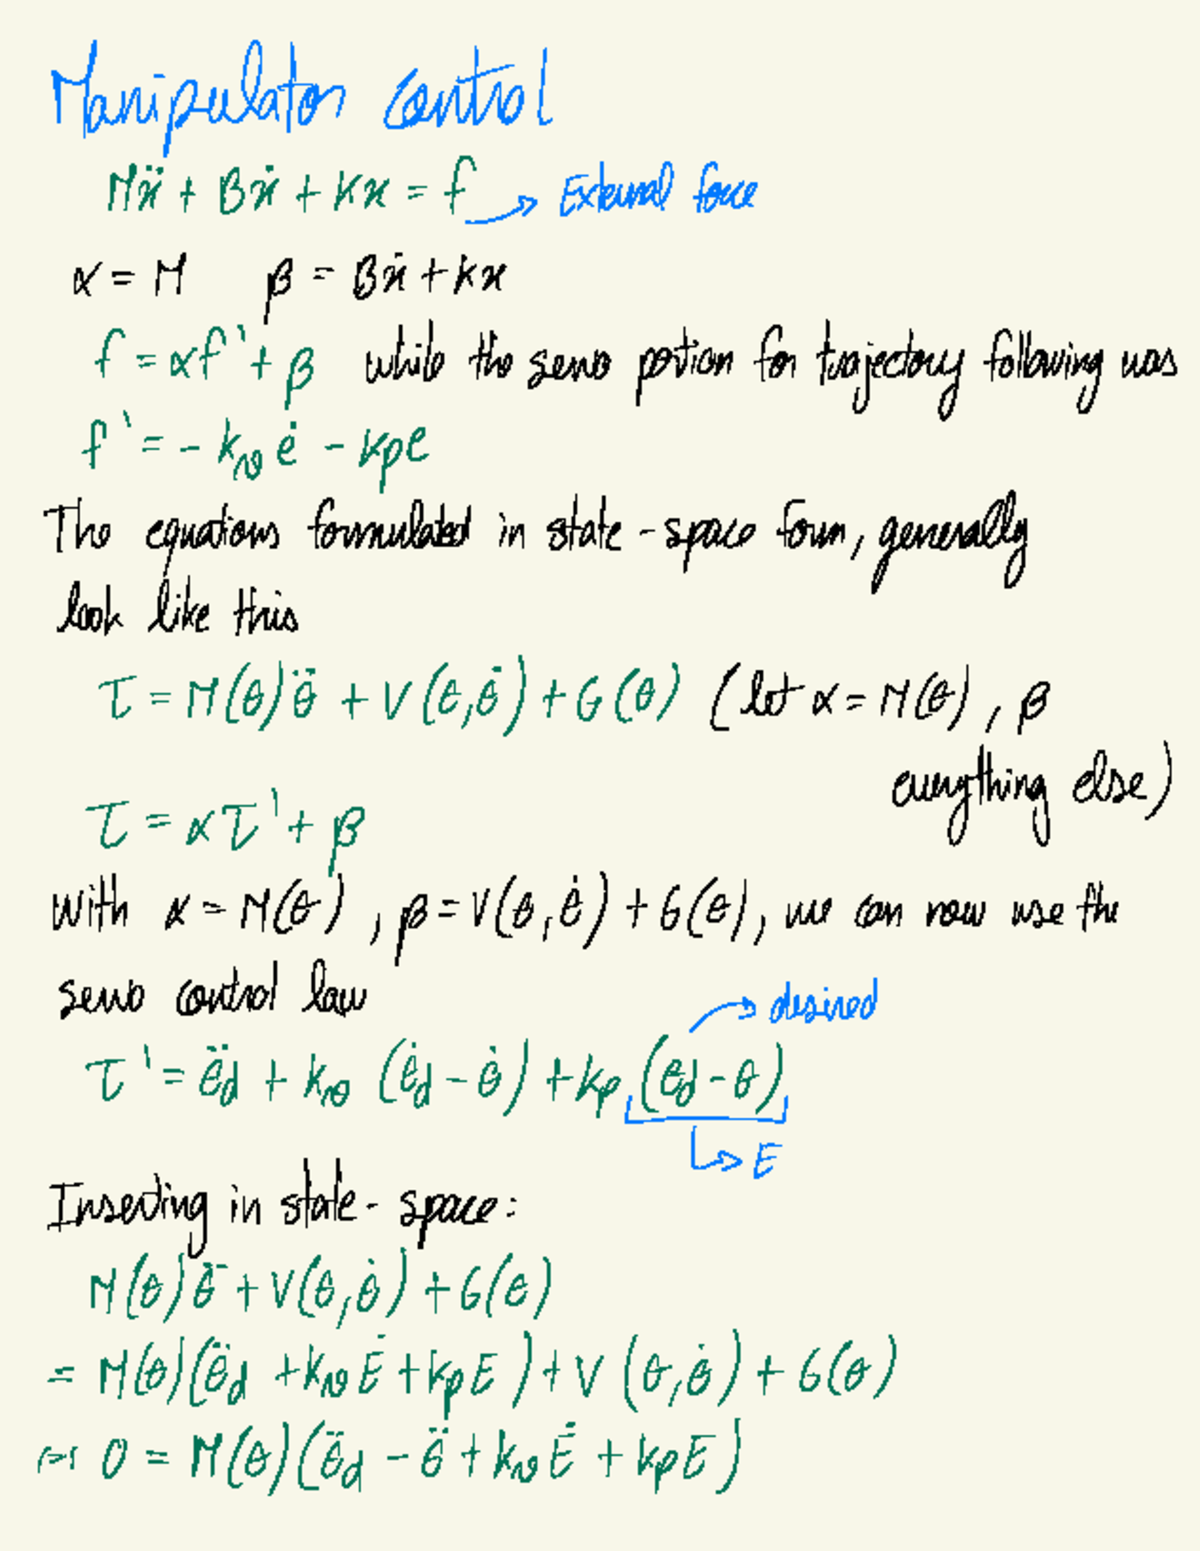 Manipulator control
Mẍ + Bẋ + Kx = f → External force
α = M β = Bẋ + Kx
f = αf' + β while the servo portion for trajectory following was
f' = - kᵥ ė - kₚe
The equations formulated in state-space form, generally
look like this
τ = M(θ)θ̈ + V(θ,θ̇) + G(θ) (let α = M(θ), β
everything else)
τ = ατ' + β
With α = M(θ), β = V(θ,θ̇) + G(θ), we can now use the
servo control law
→ desired
τ' = θ̈d + kᵥ (θ̇d - θ̇) + kₚ (θd - θ)
↳ E
Inserting in state-space:
M(θ)θ̈ + V(θ,θ̇) + G(θ)
= M(θ)(θ̈d + kᵥĖ + kₚE) + V(θ,θ̇) + G(θ)
↦ 0 = M(θ)(θ̈d - θ̈ + kᵥĖ + kₚE)